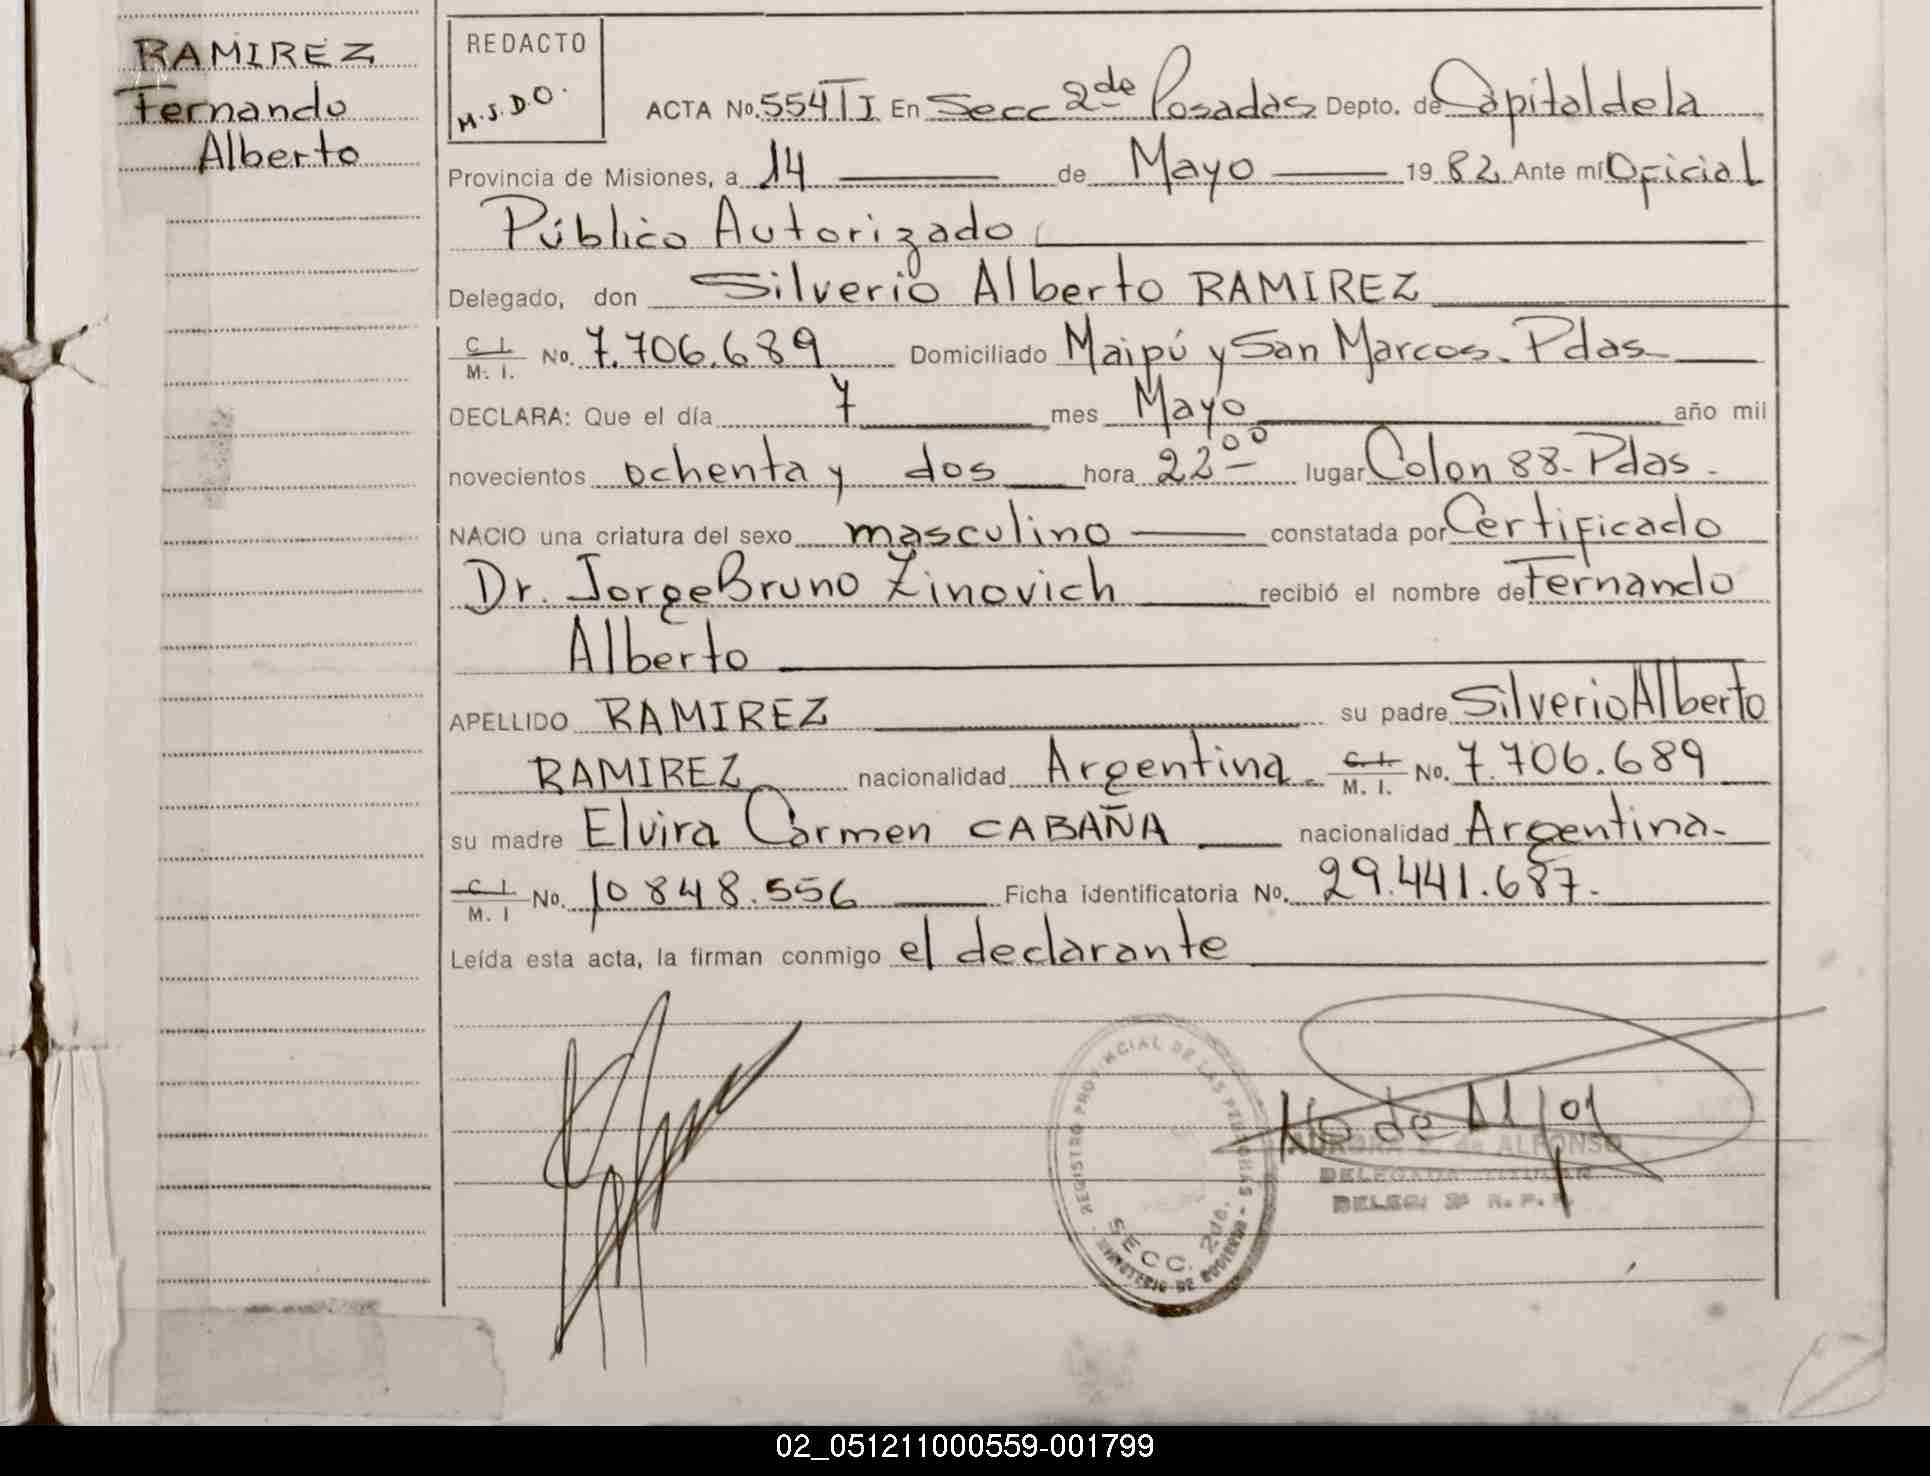 RAMIREZ
Fernando
Alberto
REDACTO
M.S.D.O.
ACTA No. 554 TI En Secc 2de Posadas Depto. de Capital de la
Provincia de Misiones, a 14 de Mayo 1982 Ante mí Oficial
Público Autorizado
Delegado, don Silverio Alberto RAMIREZ
C. I. M. I. No. 7.706.689 Domiciliado Maipú y San Marcos. Pdas
DECLARA: Que el día 7 mes Mayo año mil
novecientos ochenta y dos hora 22 00 lugar Colon 88- Pdas.
NACIO una criatura del sexo masculino constatada por Certificado
Dr. Jorge Bruno Zinovich recibió el nombre de Fernando
Alberto
APELLIDO RAMIREZ su padre Silverio Alberto
RAMIREZ nacionalidad Argentina. C. I. M. I. No. 7.706.689
su madre Elvira Carmen CABAÑA nacionalidad Argentina.
C. I. M. I No. 10848.556 Ficha identificatoria No. 29.441.687.
Leída esta acta, la firman conmigo el declarante
REGISTRO PROVINCIAL DE LAS PERSONAS
SECC. 2da.
MINISTERIO DE GOBIERNO
de ALFONSO
DELEGADA TITULAR
02_051211000559-001799